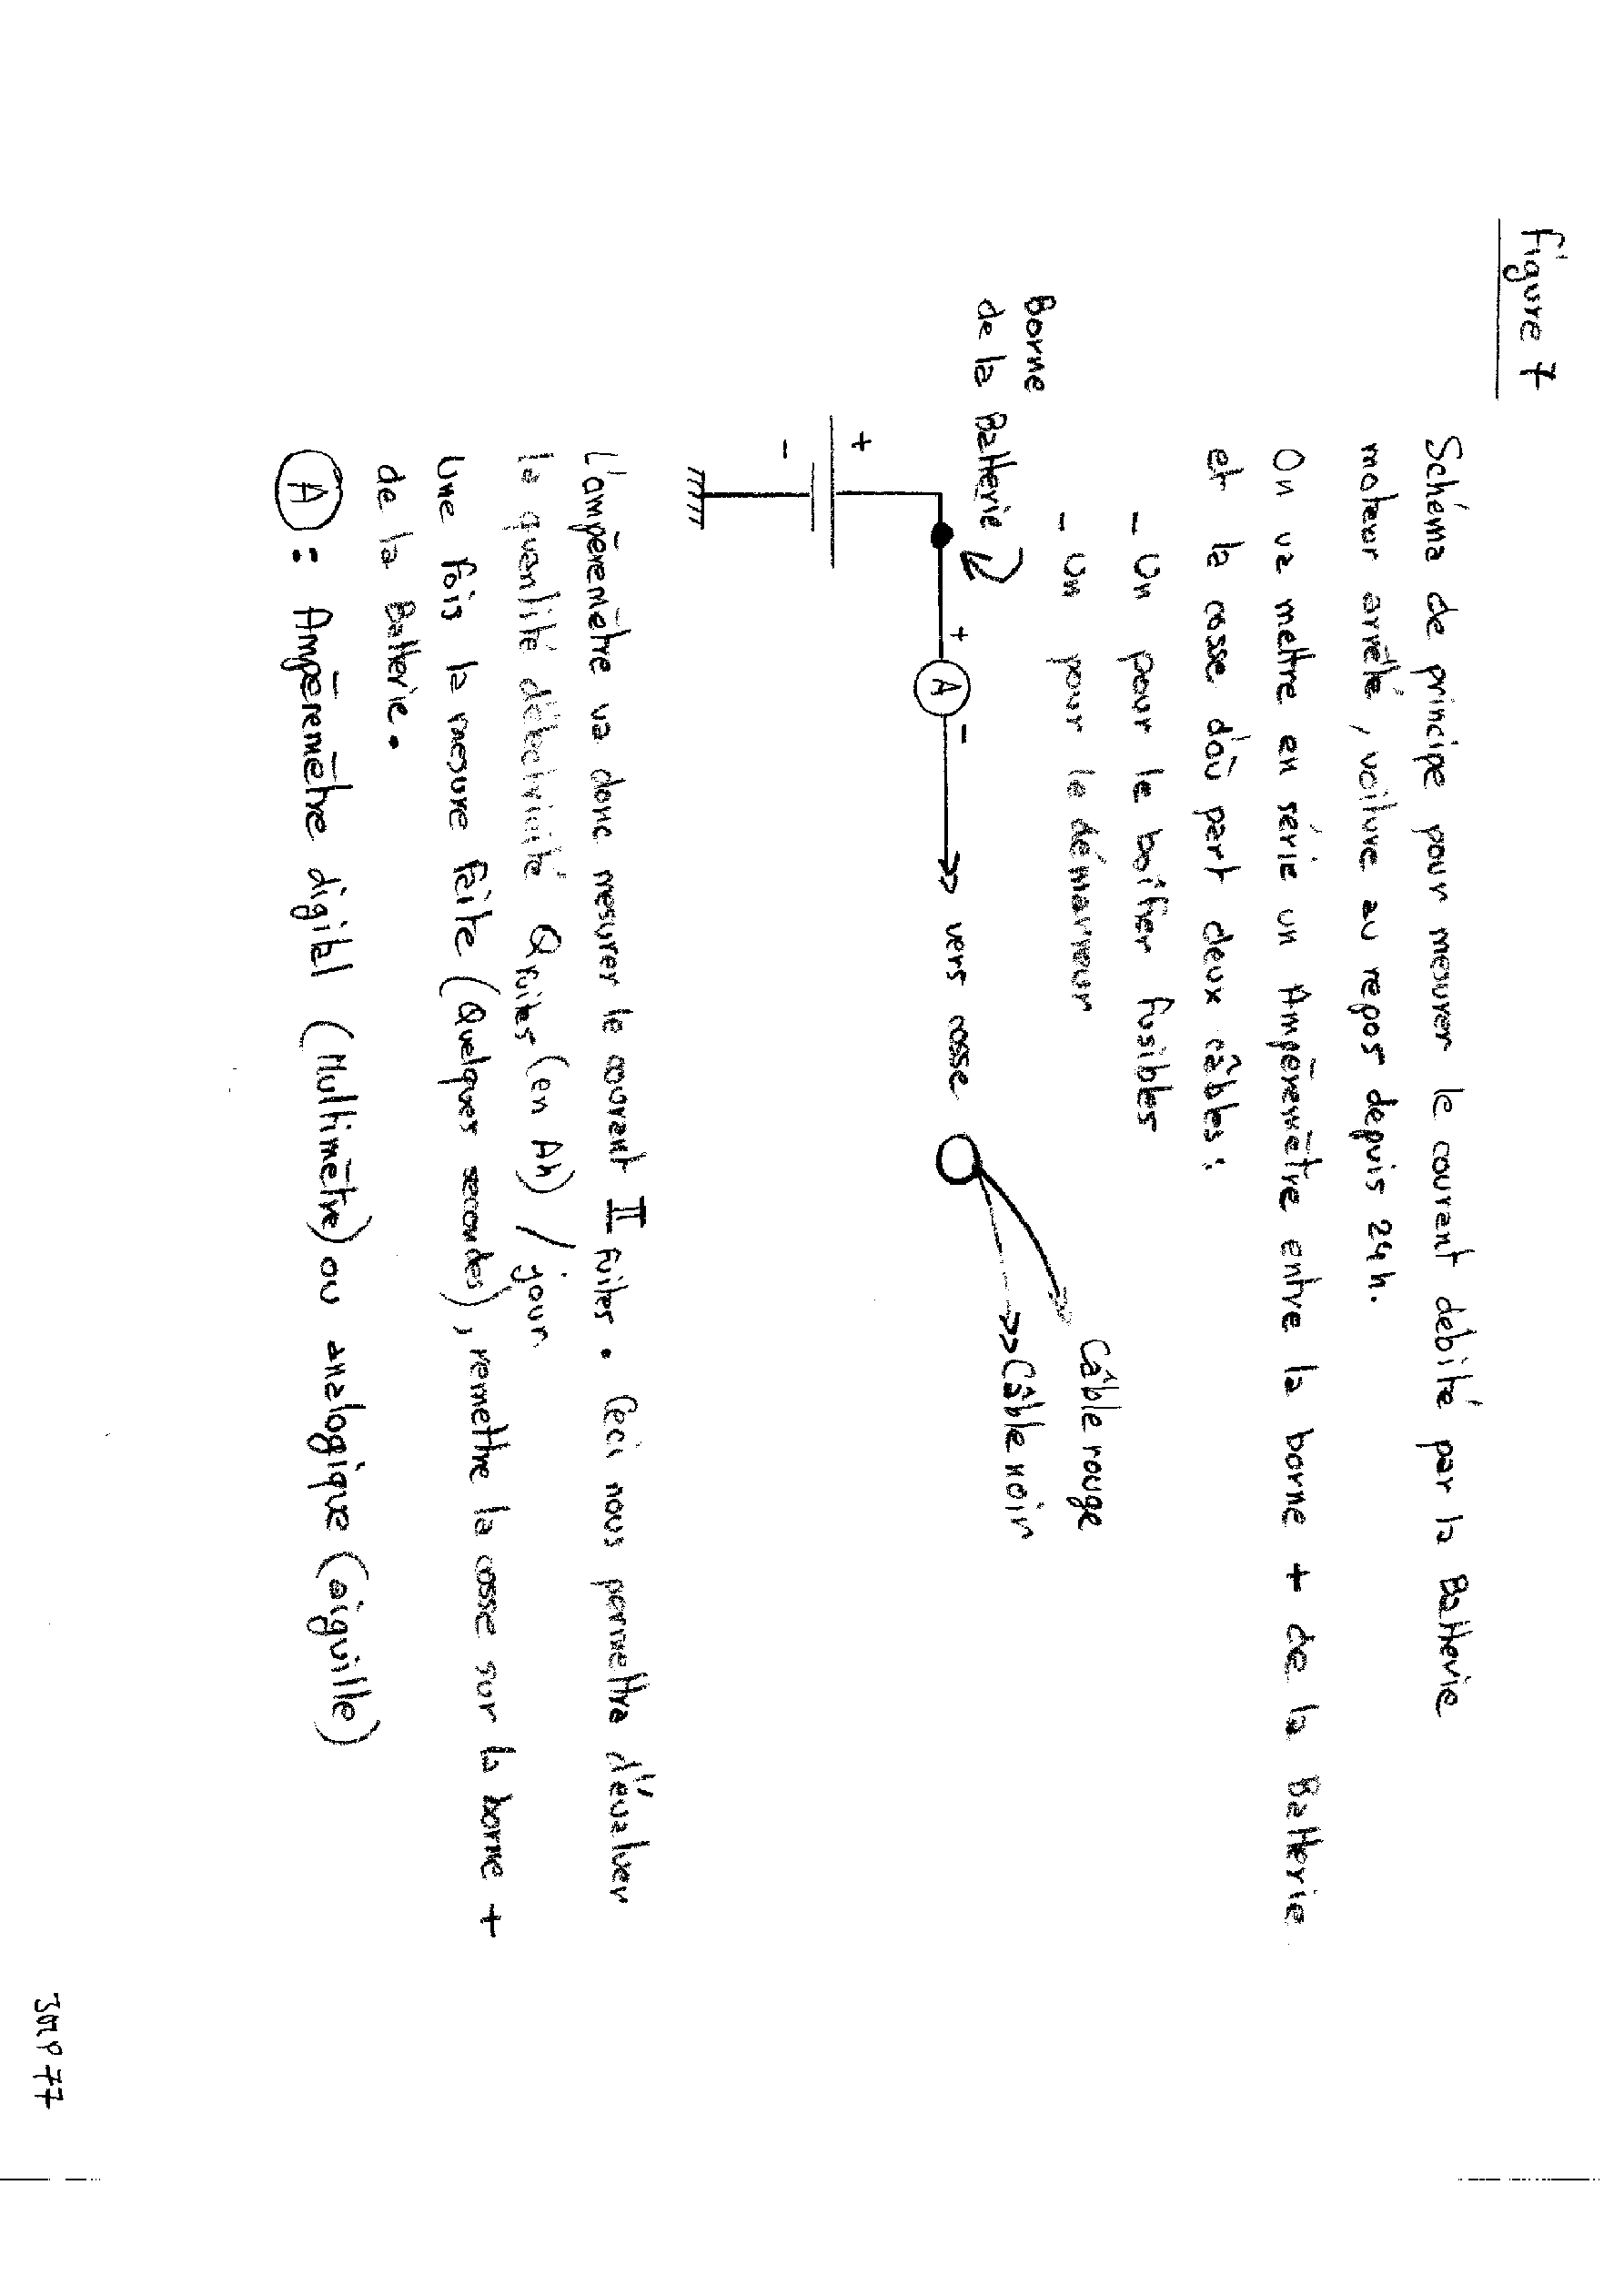 Figure 7
Schéma de principe pour mesurer le courant débité par la Batterie
moteur arrêté, voiture au repos depuis 24h.
On va mettre en série un Ampèremètre entre la borne + de la Batterie
et la cosse d'où part deux câbles:
- Un pour le boîtier fusibles
- Un pour le démarreur
Borne
de la Batterie
+
-
+ A -
vers cosse
Câble rouge
Câble noir
L'ampèremètre va donc mesurer le courant I fuites. Ceci nous permettra d'évaluer
la quantité d'électricité Q fuites (en Ah) / jour
Une fois la mesure faite (Quelques secondes), remettre la cosse sur la borne +
de la Batterie.
A : Ampèremètre digital (Multimètre) ou analogique (aiguille)